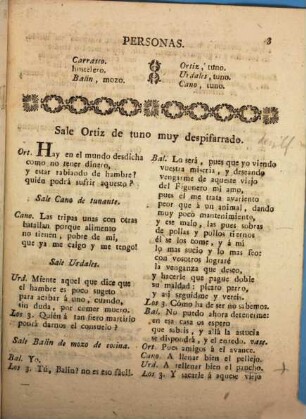 PERSONAS. 3
Carrasco.
hostelero.
Balin, mozo.
Ortiz, tuno.
Urdales, tuno.
Cano, tuno.
Sale Ortiz de tuno muy despifarrado.
Ort. Hay en el mundo desdicha
como no tener dinero,
y estar rabiando de hambre?
quién podrá sufrir aquesto?
Sale Cano de tunante.
Cano. Las tripas unas con otras
batallan porque alimento
no tienen, pobre de mí,
que ya me caigo y me tengo!
Sale Urdales.
Urd. Miente aquel que dice que
el hambre es poco sugeto
para acabar à uno, quando,
sin duda, por comer muero.
Los 3. Quién à tan fiero martirio
pondrá darnos el consuelo?
Sale Balin de mozo de cocina.
Bal. Yo.
Los 3. Tú, Balin? no es eso fácil.
Bal. Lo será, pues que yo viendo
vuestra miseria, y deseando
vengarme de aqueste viejo
del Figonero mi amo,
pues él me trata asariento
peor que à un animal, dando
muy poco mantenimiento,
y ese malo, las pues sobras
de pollas y pollos tiernos
él se los come, y à mí
lo mas sucio y lo mas feo:
con vosotros lograré
la venganza que deseo,
y hacerle que pague doble
su maldad: pluto perro,
y así seguidme y vereis.
Los 3. Cómo ha de ser no sabemos.
Bal. No puedo ahora detenerme:
en esa casa os espero
que subais, y allá la astucia
se dispondrá, y el enredo. vase.
Ort. Pues amigos à el avance.
Cano. A llenar bien el pellejo.
Urd. A rellenar bien el pancho.
Los 3. Y sacarle à aqueste viejo